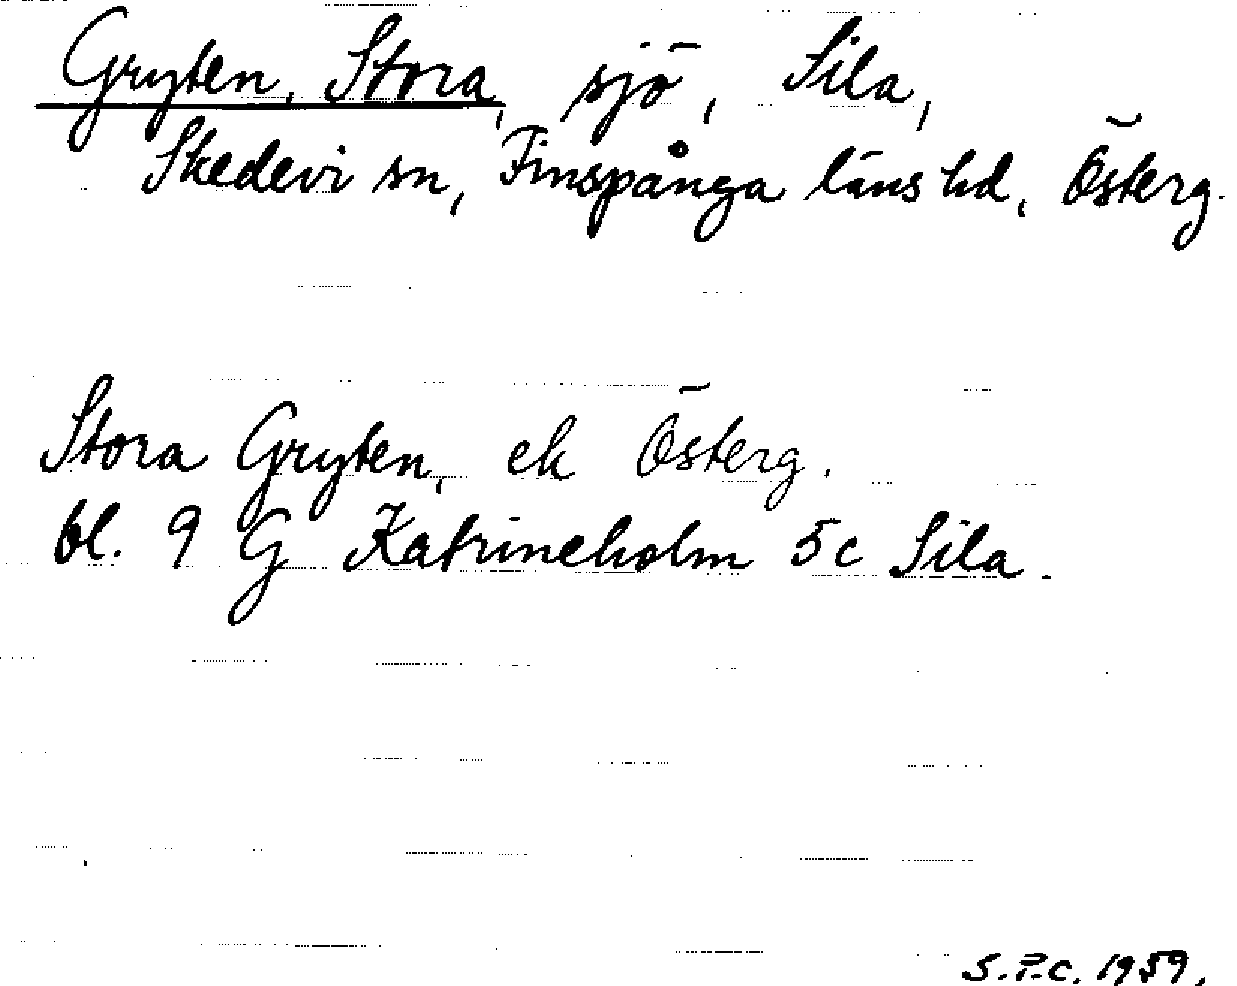 Gryten, Stora, sjö, Sila,
Skedevi sn, Finspånga läns hd, Österg.
Stora Gryten, ek Österg.
bl. 9 G Katrineholm 5c Sila.
S.P.C. 1959.